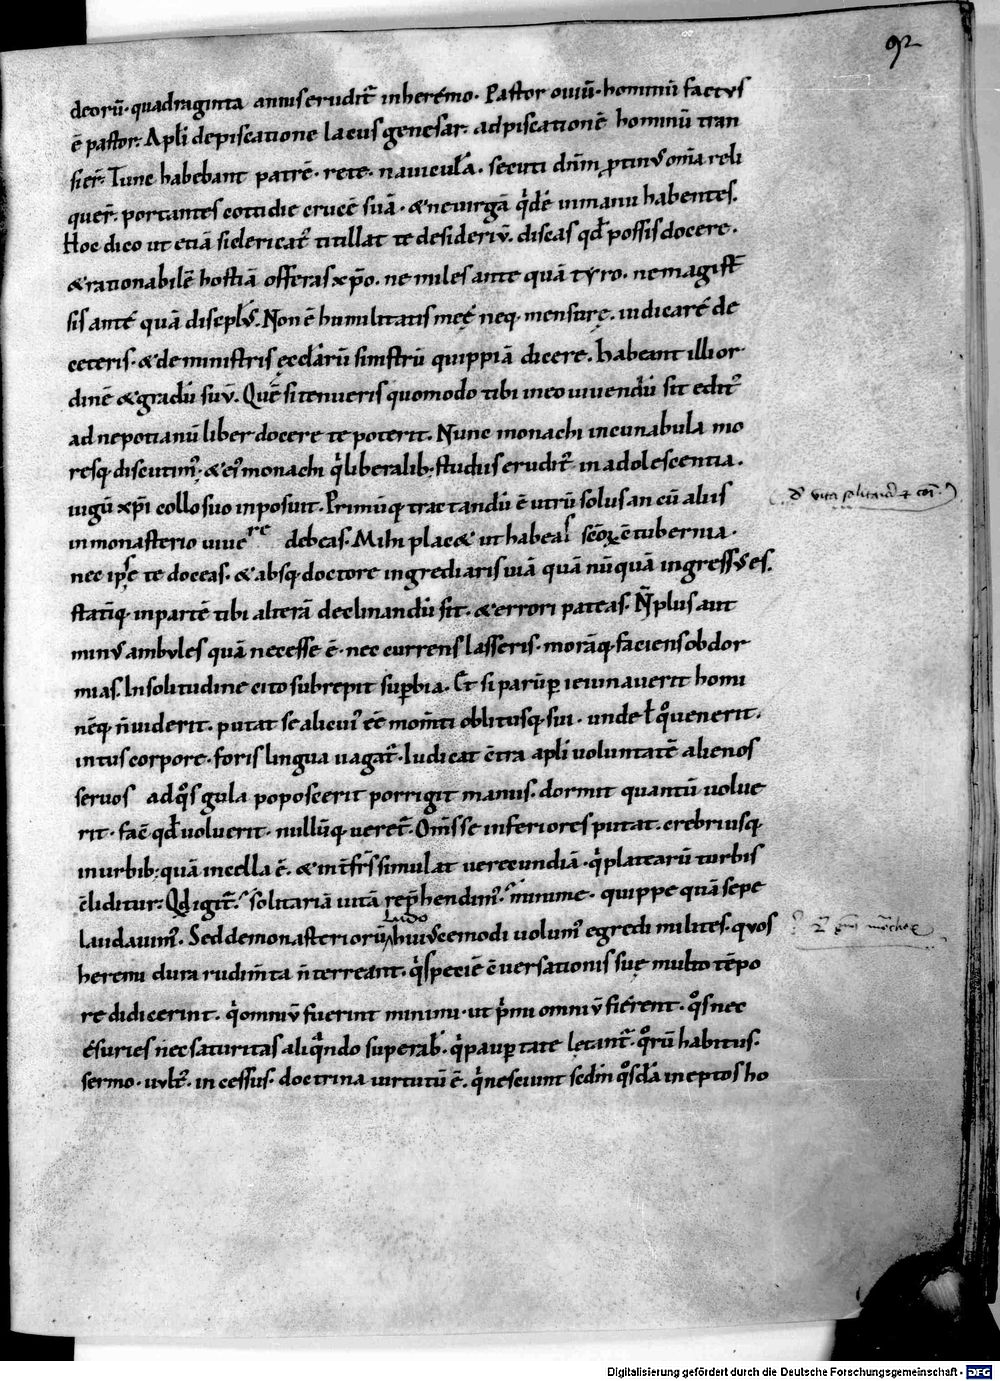 92
deorū· quadraginta annis erudit᷑ inherémo. Pastor ouiū· hominū factus
ē pastor. Apłi depiscatione lacus genesar· adpiscationē hominū tran
sier̄. Tunc habebant patrē· rete· nauicułā. secuti dn̄m ꝓtinus om̄ia reli
quer̄. portantes cottidie crucē suā· & ne uirgā q̇dē inmanu habentes.
Hoc dico ut etiā si clericat᷒ titillat te desideriū. discas qđ possis docere.
& rationabilē hostiā offeras xp̄o. ne miles ante quā tyro. ne magist̄
sis anté quā discipl̄s. Non ē humilitatis meę neq· mensurę. iudicaré de
ceteris· & de ministris ęccłarū sinistrū quippiā dicere. habeant illi or
dinē & gradū suū. Quē si tenueris quomodo tibi in eo uiuendū sit edit᷒
ad nepotianū liber docere te poterit. Nunc monachi incunabula mo
resq· discutim᷒· & ei᷒ monachi q̇ liberalib; studiis erudit᷒· in adolescentia.
iugū xp̄i collo suo inposuit. Primūq· tractandū ē utrū solus an cū aliis
inmonasterio uiuere debeas. Mihi plac& ut habeas sc̄oꝝ ctubernia.
nec ipse te doceas. & absq· doctore ingrediaris uiā quā nūquā ingressus es.
statīq· inpartē tibi alterā declinandū sit. & errori pateas. N̄ plus aut
minus ambules quā necesse ē· nec currens lasseris· morāq· faciens obdor
mias. In solitudine cito subrepit suꝑbia. Et si parūꝑ ieiunauerit homi
nēq· n̄ uiderit. putat se alicui᷒ ēē mom̄ti oblitusq· sui. unde ł quo uenerit.
intus corpore· foris lingua uagat᷒. Iudicat c̄tra apłi uoluntatē alienos
seruos adqͦs gula poposcerit porrigit manus. dormit quantū uolue
rit· fac̄ qđ uoluerit· nullūq· ueret᷒. Om̄s se inferiores putat. crebriusq·
inurbib; quā incella ē. & int̄ fr̄s simulat uerecundiā· q̇ platearū turbis
c̄liditur. Qd̄ igit᷒. solitariā uitā rep̄hendim᷒. minime· quippe quā sepe
laudauim᷒. Sed demonasteriorū ludo hui᷒cemodi uolum᷒ egredi milites. quos
heremi dura rudim̄ta n̄ terreant. q̇ speciē c̄uersationis suę multo tēpo
re didicerint. q̇ omniū fuerint minimi· ut p̄mi omniū fiérent· qͦs nec
ésuries nec saturitas aliq̄ndo superab̄. q̇ pauꝑtate lętant᷒. qͦrū habitus.
sermo· uult᷒. incessus. doctrina uirtutū ē. q̇ nesciunt scd̄m qͦsdā ineptos ho